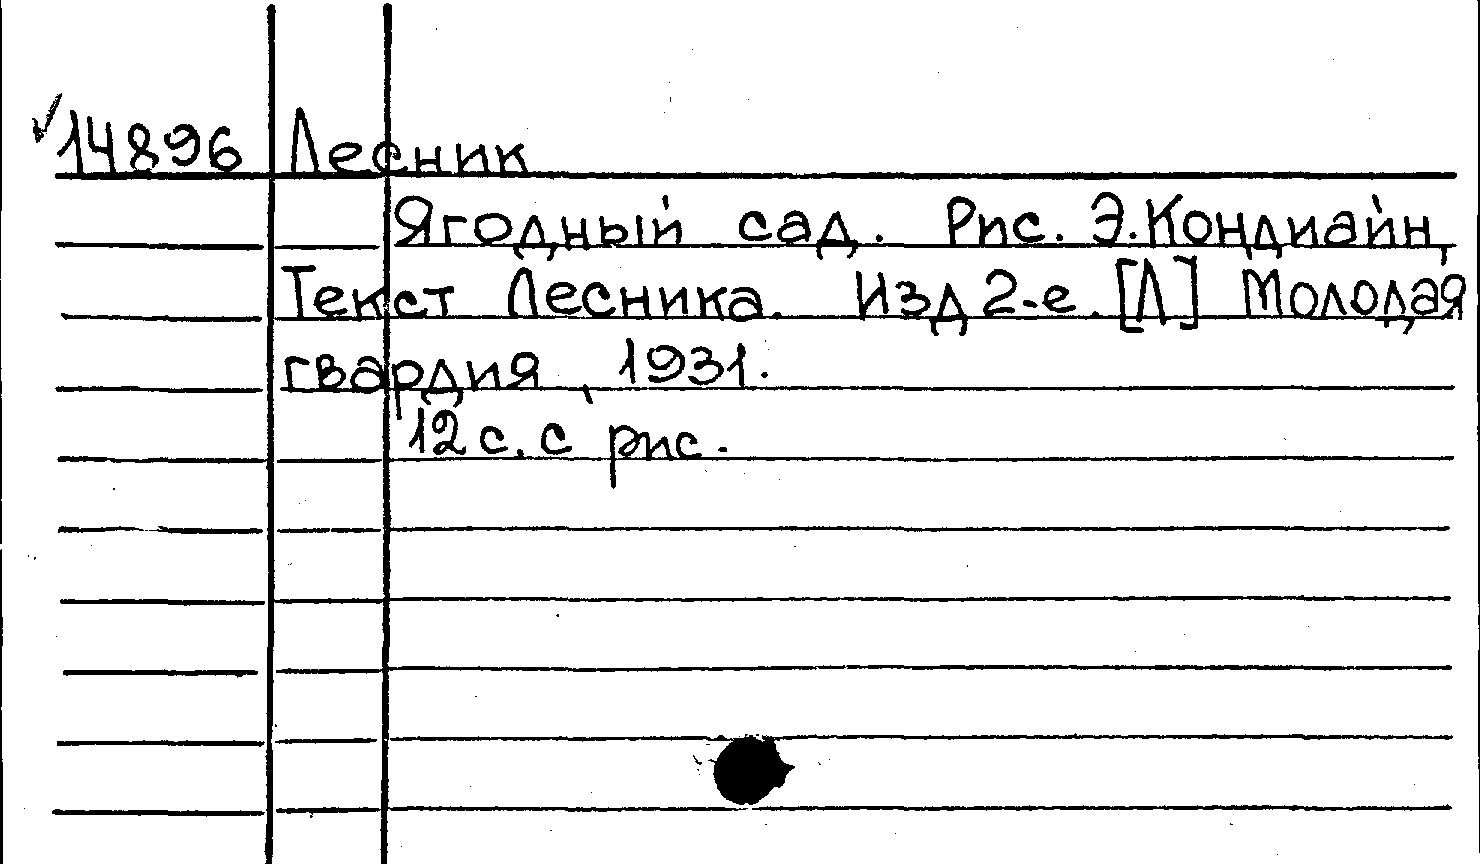 ✓14896 Лесник
Ягодный сад. Рис. Э.Кондиайн,
Текст Лесника. Изд 2-е. [Л] Молодая
гвардия, 1931.
12 с. с рис.